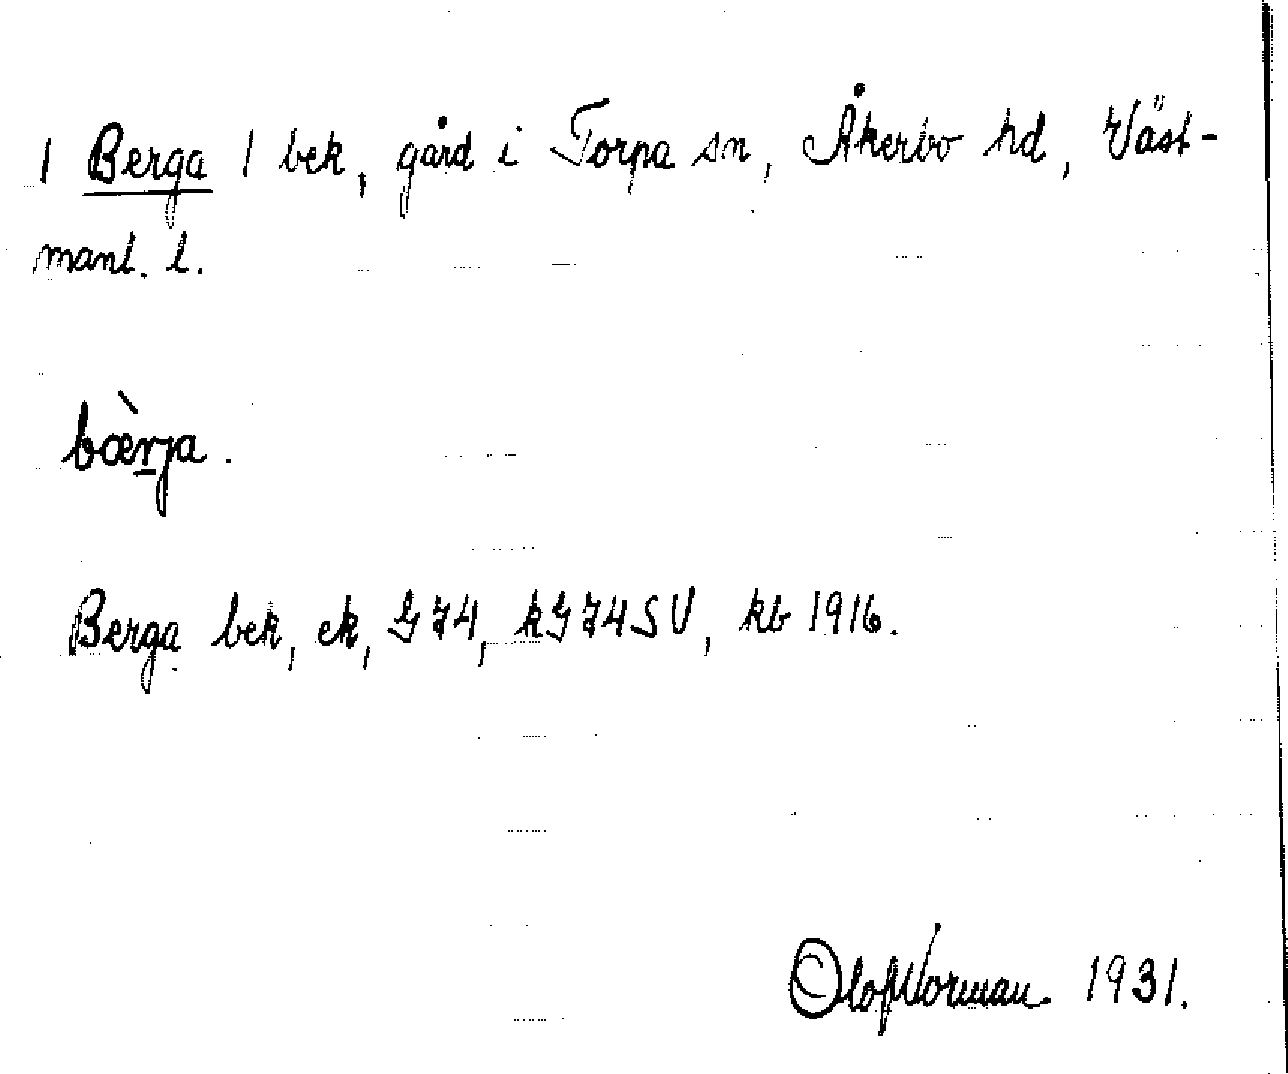 1 Berga / bek, gård i Torpa sn, Åkerbo hd, Väst-
manl. l.
bæ̀rja.
Berga bek, ek, G74, kG74SV, kb 1916.
Olof Norman 1931.